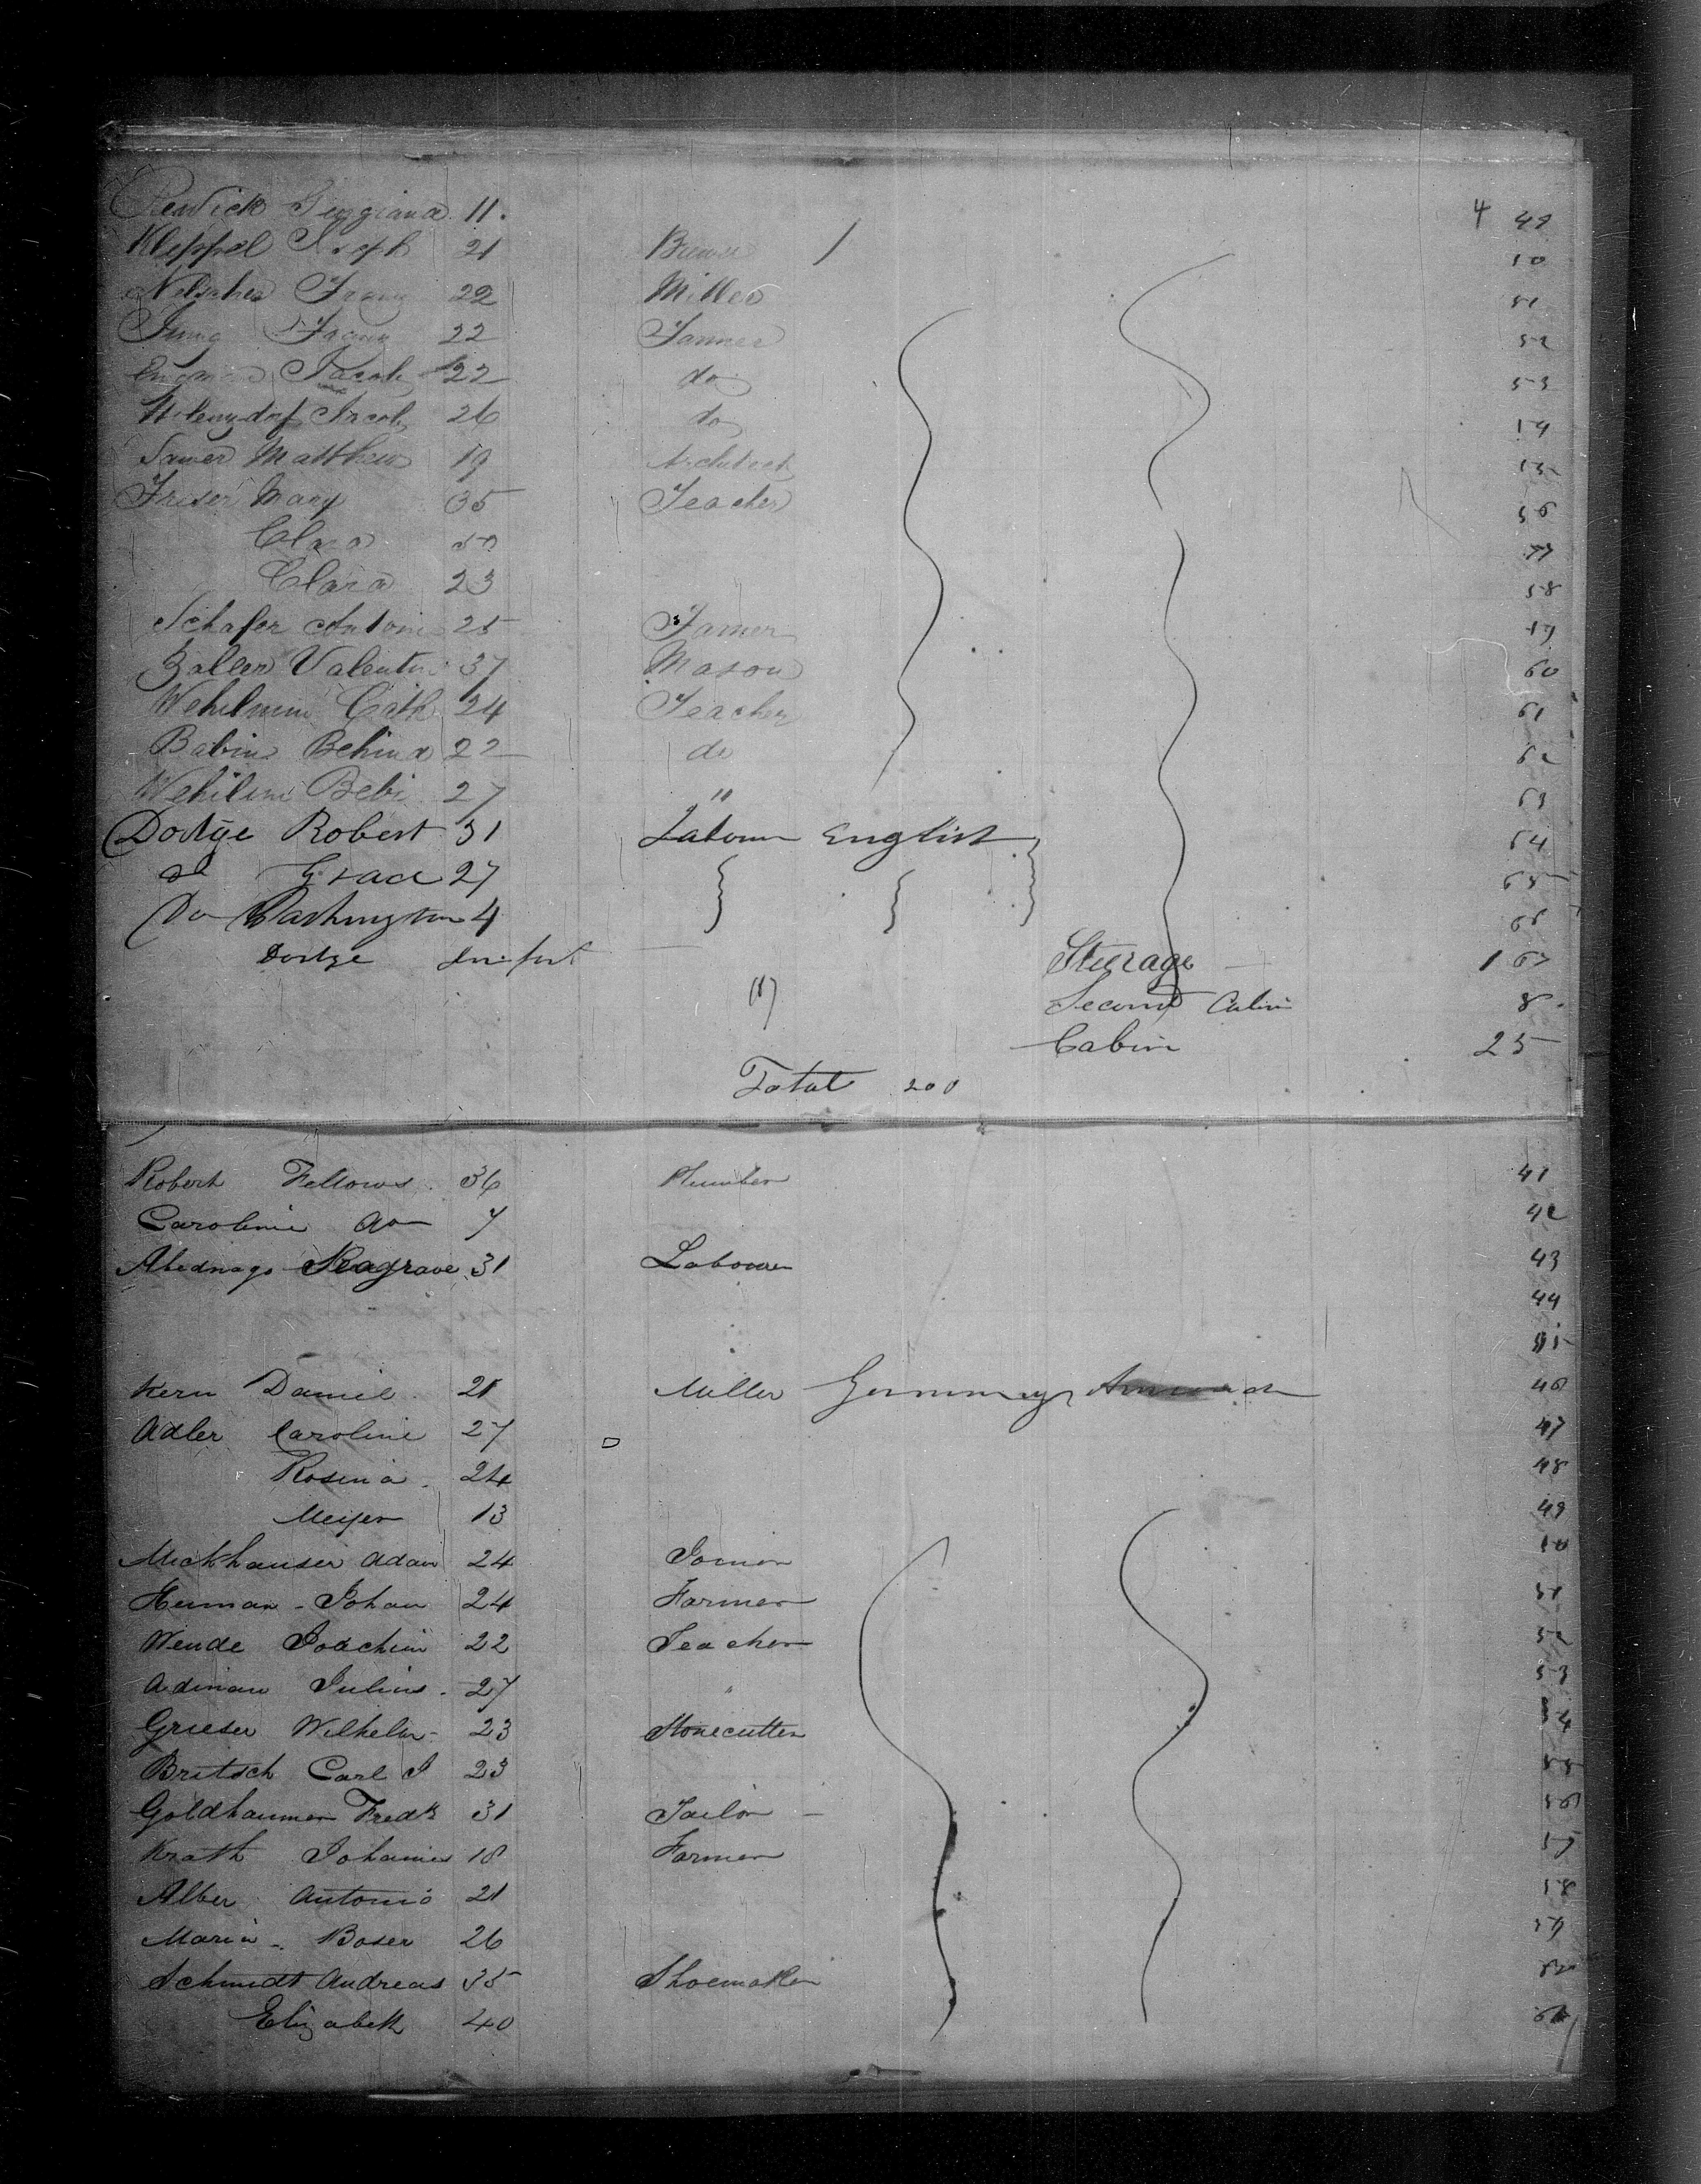 Renwick Georgiana 11. 4 49
Kleppel Joseph 21 Brewer / 50
Nelscher Franz 22 Miller 51
Jung Franz 22 Farmer 52
Jacob 22 do 53
Jacob 26 do 54
Sauer Matthew 19 Architect 55
Friser Mary 35 Teacher 56
Clara 57
Clara 23 58
Schafer Antoni 25 Farmer 59
Zaller Valentin 37 Mason 60
Wehilmini Cath 24 Teacher 61
Babin Behina 22 do 62
Wehilmi Bebi 27 " 63
Dodge Robert 31 Labour English 64
do Grace 27 65
Do Washington 4 66
Dodge Infant Steerage 167
Second Cabin 8
Cabin 25
Total 200
Robert Fellows 36 Plumber 41
Caroline do 7 42
Abednego Seagrave 31 Labourer 43
44
45
Kern Daniel 21 Miller Germany America 46
Adler Caroline 27 47
Rosina 24 48
Meyer 13 49
Mickhauser Adam 24 Joiner 50
Herman - Johan 24 Farmer 51
Wende Joachim 22 Teacher 52
Adinau Julius 27 " 53
Grieser Wilhelm 23 Stonecutter 54
Britsch Carl J 23 55
Goldhammer Fredk 31 Tailor 56
Krath Johannes 18 Farmer 57
Alber Antonio 21 58
Maria Boser 26 59
Schmidt Andreas 35 Shoemaker 60
Elizabeth 40 61